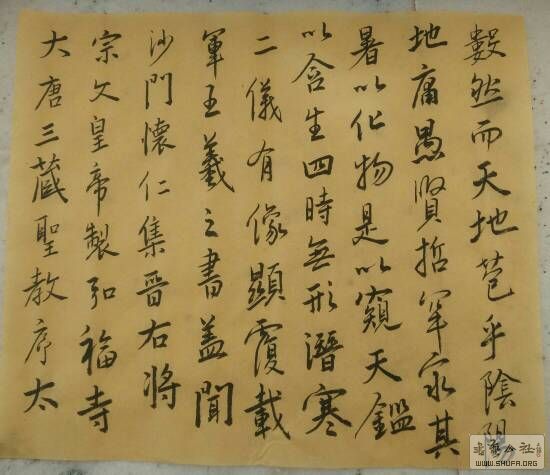 大唐三藏聖教序太
宗文皇帝製弘福寺
沙門懷仁集晉右將
軍王羲之書蓋聞
二儀有像顯覆載
以含生四時無形潛寒
暑以化物是以窺天鑑
地庸愚賢哲罕窮其
數然而天地苞乎陰陽
書藝公社
WWW.SHUFA.ORG